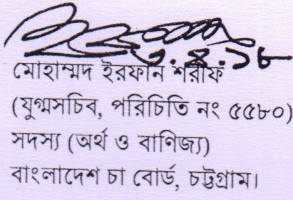 ৩.৪.১৮
মোহাম্মদ ইরফান শরীফ
(যুগ্মসচিব, পরিচিতি নং ৫৫৮০)
সদস্য (অর্থ ও বাণিজ্য)
বাংলাদেশ চা বোর্ড, চট্টগ্রাম।